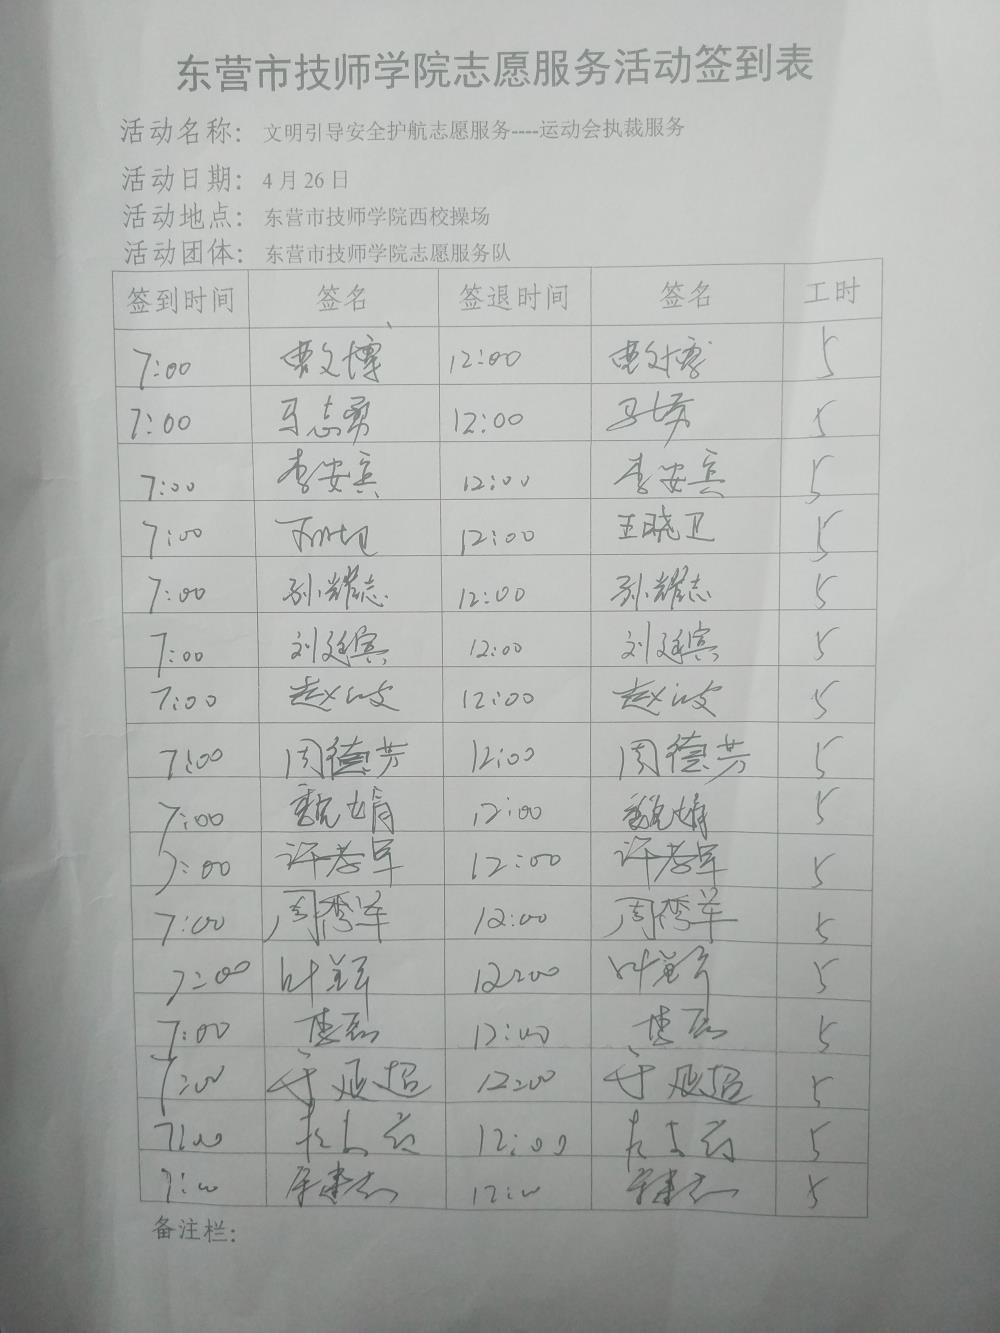 东营市技师学院志愿服务活动签到表
活动名称： 文明引导安全护航志愿服务----运动会执裁服务
活动日期： 4 月 26 日
活动地点： 东营市技师学院西校操场
活动团体： 东营市技师学院志愿服务队
签到时间 签名 签退时间 签名 工时
7:00 曹文博 12:00 曹文博 5
7:00 马志勇 12:00 马志勇 5
7:00 李安宾 12:00 李安宾 5
7:00 王晓卫 12:00 王晓卫 5
7:00 孙耀志 12:00 孙耀志 5
7:00 刘廷宾 12:00 刘廷宾 5
7:00 赵 12:00 赵 5
7:00 周德芳 12:00 周德芳 5
7:00 魏娟 12:00 魏娟 5
7:00 许孝军 12:00 许孝军 5
7:00 周秀军 12:00 周秀军 5
7:00 叶 12:00 叶 5
7:00 12:00 5
7:00 超 12:00 超 5
7:00 12:00 5
7:00 12:00 5
备注栏：